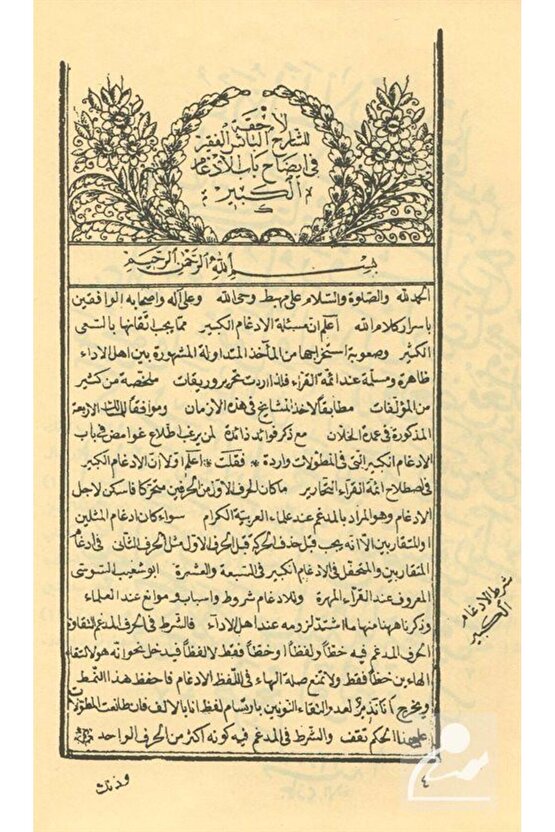 لاحقة
للشارح الناشر الفقير
في ايضاح باب الادغام
الكبير
بسم الله الرحمن الرحيم
الحمد لله والصلوة والسلام على مهبط وحى الله وعلى آله واصحابه الواقفين
باسرار كلام الله اعلم ان مسئلة الادغام الكبير مما يجب اتقانها بالسعى
الكثير وصعوبة استخراجها من المآخذ المتداولة المشهورة بين اهل الاداء
ظاهرة ومسلّمة عند ائمة القراء فلذا اردت تحرير وريقات ملخصة من كثير
من المؤلفات مطابقا لاخذ المشايخ فى هذه الازمان وموافقا للمسالك الاربعة
المذكورة فى عمدة الخلان مع ذكر فوائد زائدة لمن يرغب اطلاع غوامض فى باب
الادغام الكبير التى فى المطولات واردة فقلت اعلم اولا ان الادغام الكبير
فى اصطلاح ائمة القراء النحارير ما كان الحرف الاول من الحرفين متحركا فاسكن لاجل
الادغام وهو المراد بالمدغم عند علماء العربية الكرام سواء كان ادغام المثلين
او المتقاربين الا انه يجب قبل حذف الحركة قبل الحرف الاول مثل الحرف الثانى فى ادغام
المتقاربين والمتحفل فى الادغام الكبير فى السبعة والعشرة ابو شعيب السوسى
المعروف عند القراء المهرة وللادغام شروط واسباب وموانع عند العلماء
وذكرنا ههنا منها ما اشتد لزومه عند اهل الاداء فالشرط فى الحرف المدغم التقاؤه
الحرف المدغم فيه خطا ولفظا او خطا فقط لا لفظا فيدخل نحو انه هو لالتقاء
الهاءين خطا فقط ولا تمنع صلة الهاء فى اللفظ الادغام فاحفظ هذا النمط
ويخرج انا نذير لعدم التقاء النونين بارتسام لفظ انا بالالف فان طالعت المطولات
على هذا الحكم تقف والشرط فى المدغم فيه كونه اكثر من الحرف الواحد
شرط الادغام
الكبير
وذلك
٤